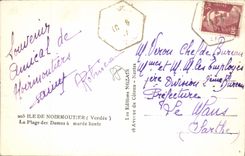 Souvenir
Amical de
Noirmoutiers
205 ILE DE NOIRMOUTIER (Vendée)
La Plage des Dames à marée haute
Les Editions NOZAIS
Nantes
Mr Veron Chef de Bureau
et MM les Employés
Division 2ème Bureau
Préfecture
Le Mans
Sarthe